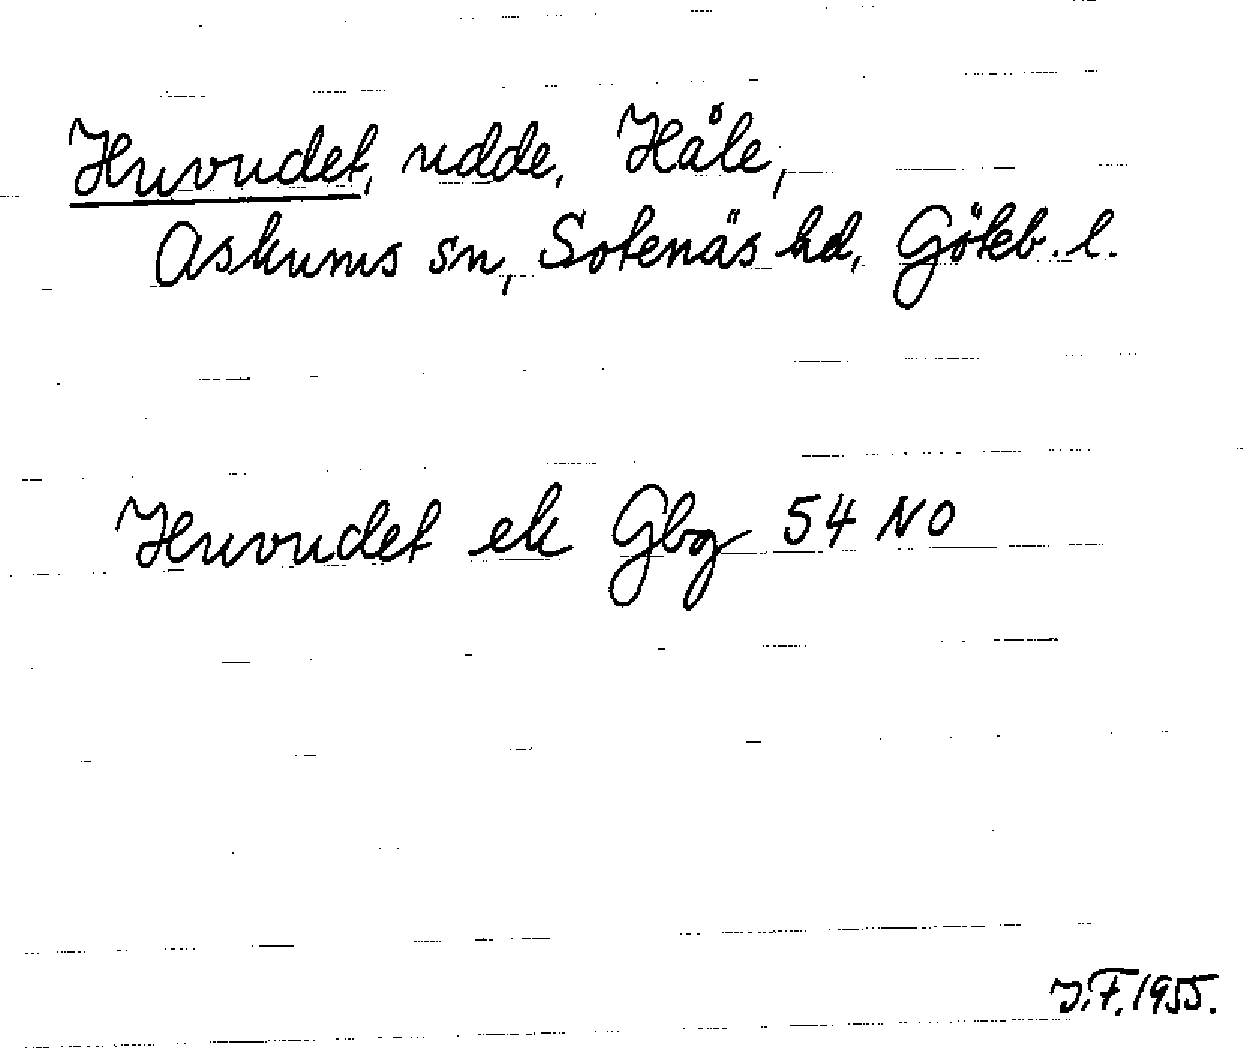 Huvudet, udde, Håle,
Askums sn, Sotenäs hd, Göteb. l.
Huvudet ek Gbg 54 NO
J.F. 1955.